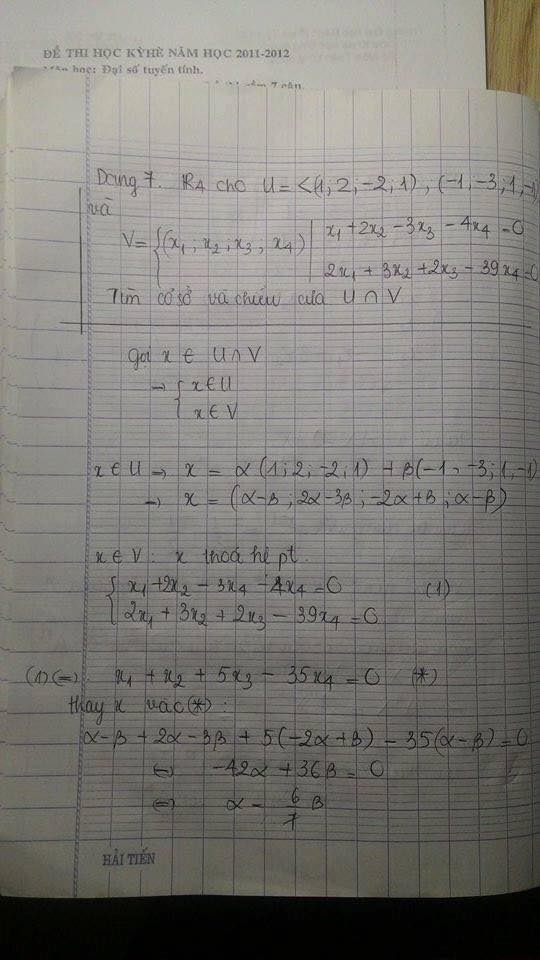 ĐỀ THI HỌC KỲ HÈ NĂM HỌC 2011-2012
Môn học: Đại số tuyến tính.
Dạng 7. R4 cho U = <(1, 2; -2; 1), (-1, -3; 1, -1)
và
V = {(x1; x2; x3; x4) | x1 + 2x2 - 3x3 - 4x4 = 0
2x1 + 3x2 + 2x3 - 39x4 = 0
Tìm cơ sở và chiều của U ∩ V
Gọi x ∈ U ∩ V
→ { x ∈ U
x ∈ V
x ∈ U → x = α(1; 2; -2; 1) + β(-1, -3; 1, -1)
→ x = (α-β; 2α-3β; -2α+β; α-β)
x ∈ V: x thoả hệ pt.
{ x1 + 2x2 - 3x4 - 4x4 = 0 (1)
2x1 + 3x2 + 2x3 - 39x4 = 0
(1) (=) x1 + x2 + 5x3 - 35x4 = 0 (*)
thay x vào (*):
α-β + 2α-3β + 5(-2α+β) - 35(α-β) = 0
(=) -42α + 36β = 0
(=) α = 6/7 β
HẢI TIẾN